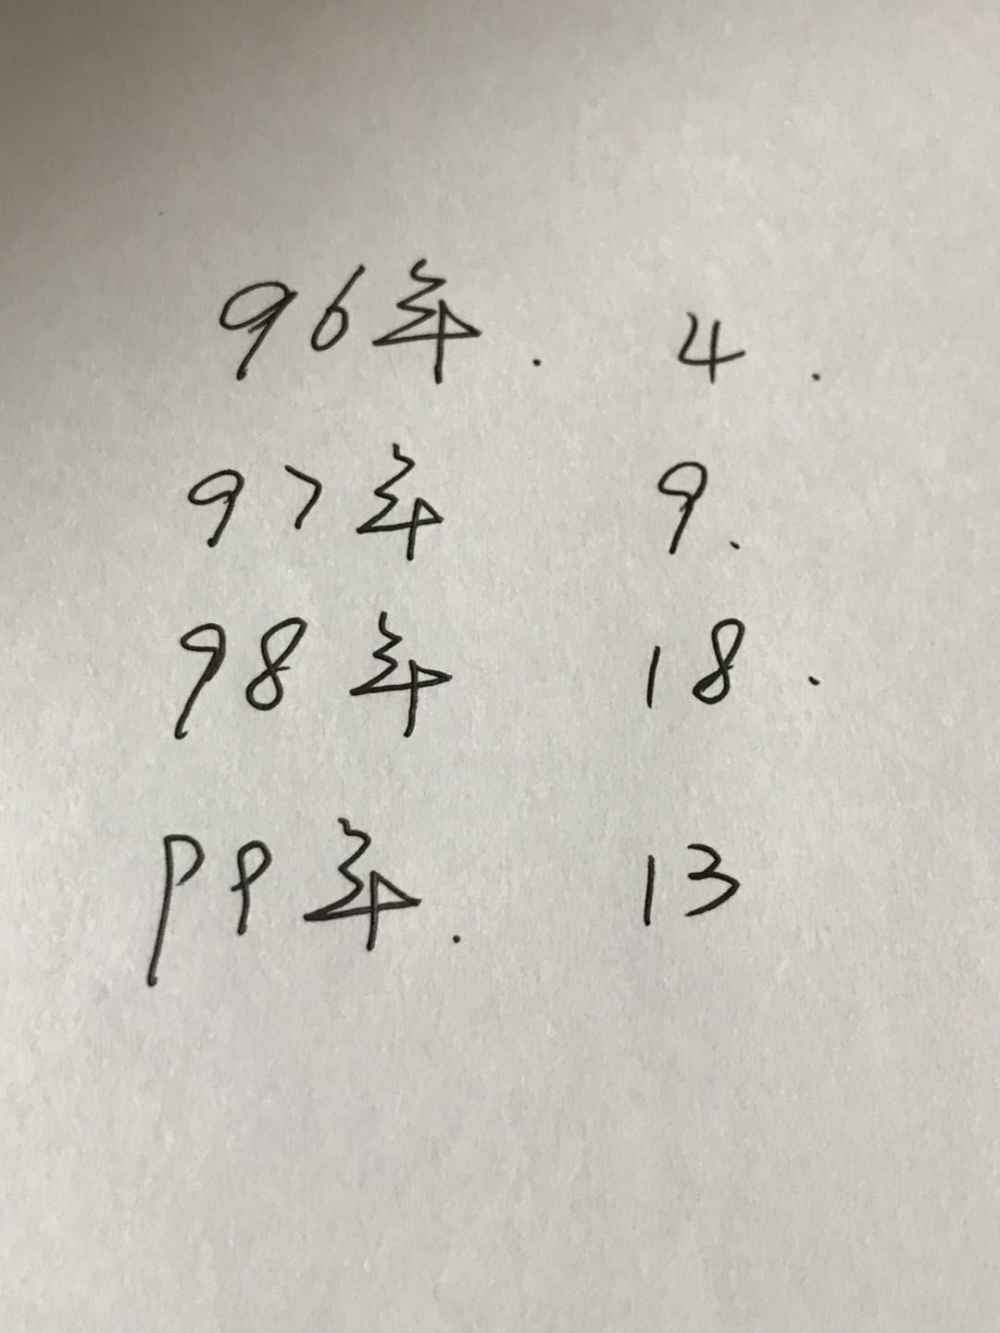 96年. 4.
97年 9.
98年 18.
99年. 13